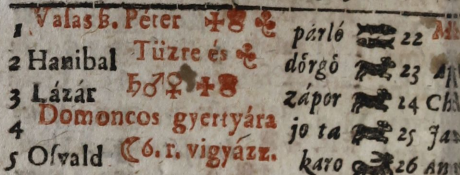 1 Valas B. Péter párló 22
2 Hanibal Tüzre és dörgö 23
3 Lázár ♄♂♀ zápor 24 Ch
4 Domoncos gyertyára jo ta 25 Jan
5 Oſvald ☾6. r. vigyázz. karo 26 An